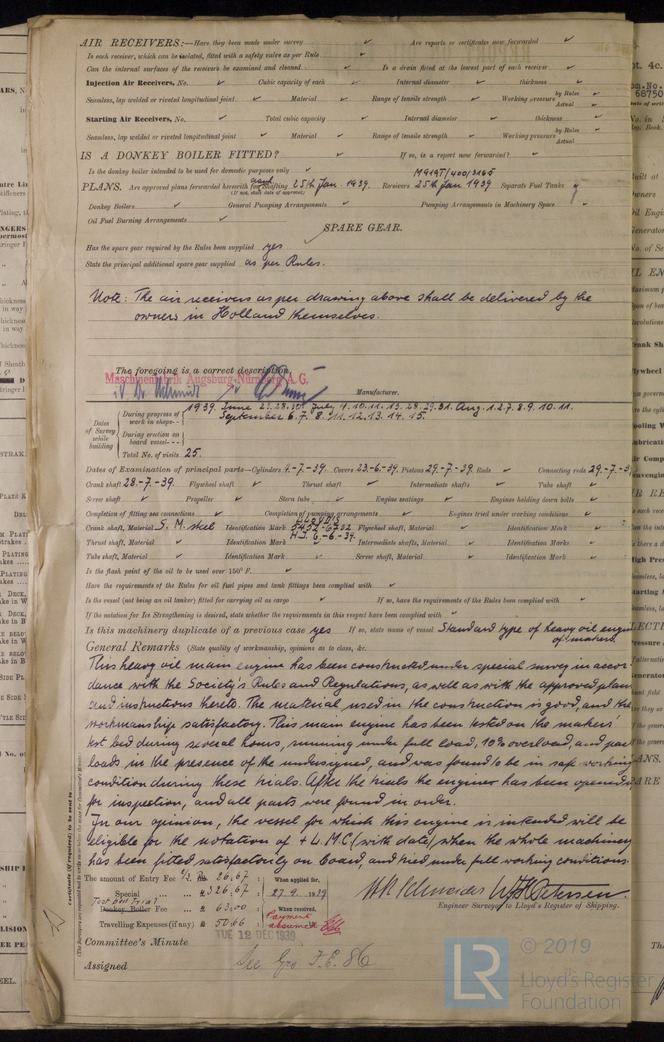 AIR RECEIVERS:—Have they been made under survey ✓ Are reports or certificates now forwarded ✓
Is each receiver, which can be isolated, fitted with a safety valve as per Rule ✓
Can the internal surfaces of the receivers be examined and cleaned ✓ Is a drain fitted at the lowest part of each receiver ✓
Injection Air Receivers, No. ✓ Cubic capacity of each ✓ Internal diameter ✓ thickness ✓
Seamless, lap welded or riveted longitudinal joint ✓ Material ✓ Range of tensile strength ✓ Working pressure by Rules ✓ Actual ✓
Starting Air Receivers, No. ✓ Total cubic capacity ✓ Internal diameter ✓ thickness ✓
Seamless, lap welded or riveted longitudinal joint ✓ Material ✓ Range of tensile strength ✓ Working pressure by Rules ✓ Actual
IS A DONKEY BOILER FITTED? ✓ If so, is a report now forwarded? ✓
Is the donkey boiler intended to be used for domestic purposes only ✓
PLANS. Are approved plans forwarded herewith for Shafting 25th Jan. 1939. Receivers 25th Jan 1939 Separate Fuel Tanks
(If not, state date of approval)
Donkey Boilers ✓ General Pumping Arrangements ✓ Pumping Arrangements in Machinery Space ✓
Oil Fuel Burning Arrangements ✓
SPARE GEAR.
Has the spare gear required by the Rules been supplied yes
State the principal additional spare gear supplied as per Rules.
Note: The air receivers as per drawing above shall be delivered by the
owners in Holland themselves.
The foregoing is a correct description,
Maschinenfabrik Augsburg-Nürnberg A. G.
Manufacturer.
Dates of Survey while building
During progress of work in shops-- 1939. June 23. 28. 30. July 4. 10. 11. 13. 28. 29. 31. Aug. 1. 2. 7. 8. 9. 10. 11.
September 6. 7. 8. 11. 12. 13. 14. 15.
During erection on board vessel---
Total No. of visits 25.
Dates of Examination of principal parts—Cylinders 4-7-39. Covers 23-6-39. Pistons 29-7-39. Rods ✓ Connecting rods 29-7-39
Crank shaft 28-7-39. Flywheel shaft ✓ Thrust shaft ✓ Intermediate shafts ✓ Tube shaft ✓
Screw shaft ✓ Propeller ✓ Stern tube ✓ Engine seatings ✓ Engines holding down bolts ✓
Completion of fitting sea connections ✓ Completion of pumping arrangements ✓ Engines tried under working conditions ✓
Crank shaft, Material S. M. steel Identification Mark Flywheel shaft, Material ✓ Identification Mark ✓
Thrust shaft, Material ✓ Identification Mark Intermediate shafts, Material ✓ Identification Marks ✓
Tube shaft, Material ✓ Identification Mark ✓ Screw shaft, Material ✓ Identification Mark ✓
Is the flash point of the oil to be used over 150° F. ✓
Have the requirements of the Rules for oil fuel pipes and tank fittings been complied with ✓
Is the vessel (not being an oil tanker) fitted for carrying oil as cargo ✓ If so, have the requirements of the Rules been complied with ✓
If the notation for Ice Strengthening is desired, state whether the requirements in this respect have been complied with ✓
Is this machinery duplicate of a previous case yes If so, state name of vessel Standard type of heavy oil engine
of makers.
General Remarks (State quality of workmanship, opinions as to class, &c.
This heavy oil main engine has been constructed under special survey in accor-
dance with the Society's Rules and Regulations, as well as with the approved plans
and instructions hereto. The material used in the construction is good, and the
workmanship satisfactory. This main engine has been tested on the makers'
test bed during several hours, running under full load, 10% overload, and part
loads in the presence of the undersigned, and was found to be in safe working
condition during these trials. After the trials the engine has been opened
for inspection, and all parts were found in order.
In our opinion, the vessel for which this engine is intended will be
eligible for the notation of + L.M.C (with date) when the whole machinery
has been fitted satisfactorily on board, and tried under full working conditions.
The amount of Entry Fee 26.67 When applied for,
Special 326.67 27.9.1939
Donkey Boiler Fee 63.00 When received,
Travelling Expenses (if any) 50.66 Payment assumed
Engine Surveyor to Lloyd's Register of Shipping.
Committee's Minute TUE 12 DEC 1939
Assigned See Gro F.E. 86
© 2019
LR
Lloyd's Register
Foundation